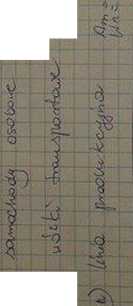 samochody osobowe
wózki transportowe
linia produkcyjna